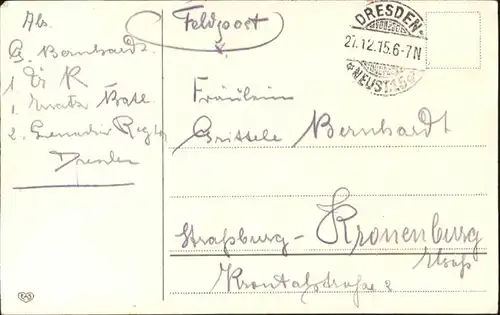 Abs.
G. Bernhardt
1.
1. Ersatz Batl.
2. Grenadier Regt.
Dresden
Feldpost
DRESDEN
27.12.15.6-7N
NEUST.
Fräulein
Bernhardt
Straßburg - Kronenburg
Elsaß
Kronthalstraße 2